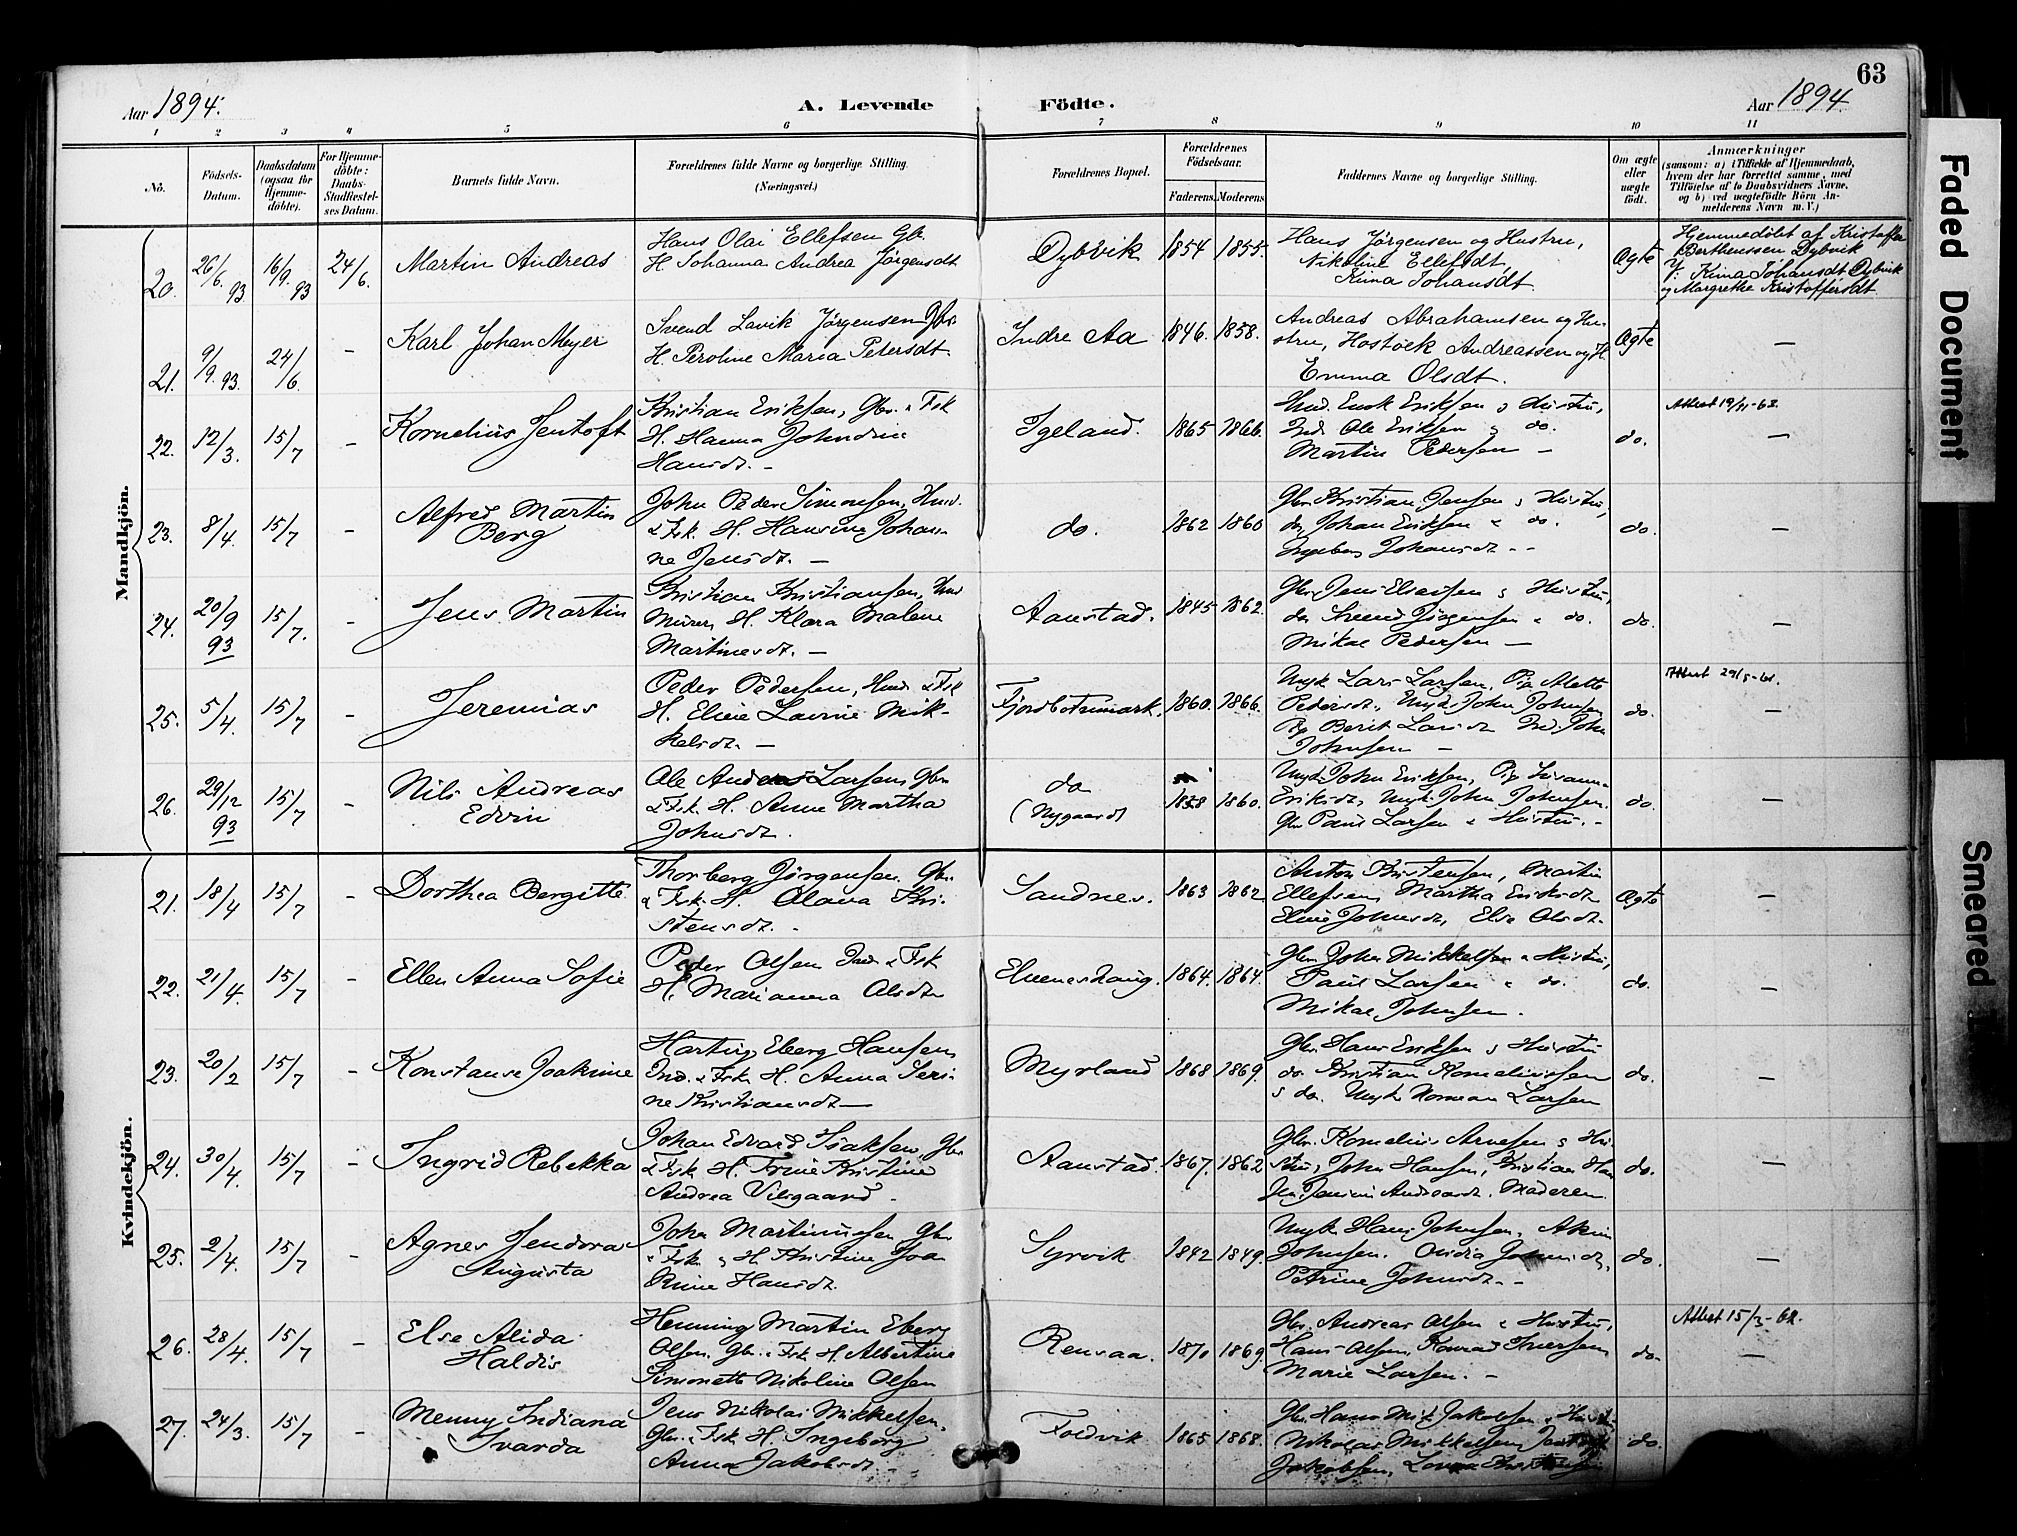 63
Aar 1894.
A. Levende Födte.
Aar 1894.
1 2 3 4 5 6 7 8 9 10 11
No.
Födsels-Datum.
Daabsdatum (ogsaa for Hjemme-döbte).
For Hjemme-döbte: Daabs-Stadfæstel-ses Datum.
Barnets fulde Navn.
Forældrenes fulde Navne og borgerlige Stilling. (Næringsvei.)
Forældrenes Bopæl.
Forældrenes Födselsaar.
Faderens. Moderens.
Faddernes Navne og borgerlige Stilling.
Om ægte eller uægte födt.
Anmærkninger
(saasom: a) i Tilfælde af Hjemmedaab,
hvem der har forrettet samme, med
Tilföielse af to Daabsvidners Navne,
og b) ved uægtefödte Börn An-
melderens Navn m. V.)
Mandkjön.
20. 26/6. 93 16/9. 93 24/6. Martin Andreas
Hans Olai Ellefsen Gb.
H. Johanna Andrea Jørgensdt
Dybvik 1854 1855.
Hans Jørgensen og Hustru,
Nikoline Ellefsdt,
Kima Johansdt.
Ægte
Hjemmedøbt af Kristoffer
Berthenssen Dybvik
V: Kima Johansdt Dybvik
og Margrethe Kristoffersdt.
21. 9/9. 93. 24/6 - Karl Johan Meyer
Svend Lavik Jørgensen Gbr.
H. Peroline Maria Petersdt.
Indre Aa 1846. 1858.
Andreas Abrahamsen og Hu-
stru, Hostoek Andreassen og H.
Emma Olsdt.
Ægte —
22. 12/3. 15/7 - Kornelius Jentoft
Kristian Eriksen, Gbr. & Fsk
H. Hanna Johndine
Hansdt. -
Igeland. 1865 1866.
Eriksen & Hustru,
Ole Eriksen & do.
Martin Pedersen —
do.
Attest 19/11-63.
—
23. 8/4. 15/7 - Alfred Martin
Berg
John Peder Simonsen, Hmd.
& Fsk. H. Hansine Johan-
ne Jensdt. —
do. 1862 1860
Gbr. Kristian Jensen & Hustru,
do. Johan Eriksen & do.
Johansdt. --
do. —
24. 20/9 93 15/7. - Jens Martin
Kristian Kristiansen, Hmd
Murer, H. Klara Malene
Martinesdt. —
Aanstad. 1845 1862.
Gbr. Jens & Hustru,
do. Svend Jørgensen & do.
Mikal Pedersen —
do. —
25. 5/4. 15/7 - Jeremias
Peder Pedersen, Hmd. & Fsk
H. Eline Lavine Mik-
kelsdt. —
Fjordbotnmark. 1860. 1866.
Ungk. Lars Larsen, Pig. Mette
Pedersdt., Ungk. John Johnsen
Pig. Berit Larsdt. Ind. John
Johnsen —
do.
Attest 29/5-61.
—
26. 29/12 93 15/7 - Nils Andreas
Edvin
Ole Andreas Larsen, Gbr.
& Fsk. H. Anne Martha
Johnsdt.
do
(Nygaard) 1858 1860.
Ungk. John Eriksen, Pig. Susanna
Eriksdt., Ungk. John Johnsen.
Gbr. Paul Larsen & Hustru. -
do. —
Kvindekjön.
21. 18/4 15/7 - Dorthea Bergitte
Thorberg Jørgensen, Gbr.
& Fsk. H. Olava Kri-
stensdt. -
Sandnes. 1863 1862
Anton Kristensen, Martin
Ellefsen, Martha Eriksdt
Eline Johnsdt., Else Olsdt.
Ægte —
22. 21/4. 15/7 - Ellen Anna Sofie
Peder Olsen Ind. & Fsk
H. Marianna Olsdt.
Elvenes haug. 1864. 1864.
Gbr. John Mikkelsen & Hustru,
Paul Larsen & do.
Mikal Johnsen.
do. —
23. 20/2 15/7 - Konstanse Joakime
Hartvig Eberg Hansen
Ind. & Fsk. H. Anna Seri-
ne Kristiansdt —
Myrland 1868 1869.
Gbr. Hans Eriksen & Hustru
do. Kristian Korneliussen
& do. Ungk. Larsen
do. —
24. 30/4. 15/7 - Ingrid Rebekka
Johan Edvard Isaksen, Gbr.
& Fsk. H. Trine Kristine
Andrea Vilsgaard.
Aanstad. 1867. 1862
Gbr. Kornelius Arnesen & Hu-
stru, John Hansen, Kristian Han-
sen, Moderen.
do. —
25. 2/4. 15/7 - Agnes Jendora
Augusta
John Martinussen Gbr.
& Fsk. & H. Kristine Joa
Kime Hansdt.
Syrvik 1842 1849.
Ungk. Hans Johnsen, Akim
Johnsen.
Petrine Johnsdt. -
do. —
26. 28/4. 15/7 - Else Alida
Haldis
Henning Martin Eberg
Olsen, Gbr. & Fsk. H. Albertine
Simonette Nikoline Olsen
Rensaa. 1870 1869.
Gbr. Andreas Olsen & Hustru,
Hans Olsen, Konrad Iversen
Marie Larsen. -
do.
Attest 15/3-62.
—
27. 24/3. 15/7 - Menny Indiana
Svarda
Jens Nikolai Mikkelsen,
Gbr. & Fsk. H. Ingeborg
Anna Jakobsdt -
Foldvik 1865 1868.
Gbr. Hans Mik. Jakobsen &
Nikolai Mikkelsen,
Jakobsen,
do.
Faded Document
Smeared